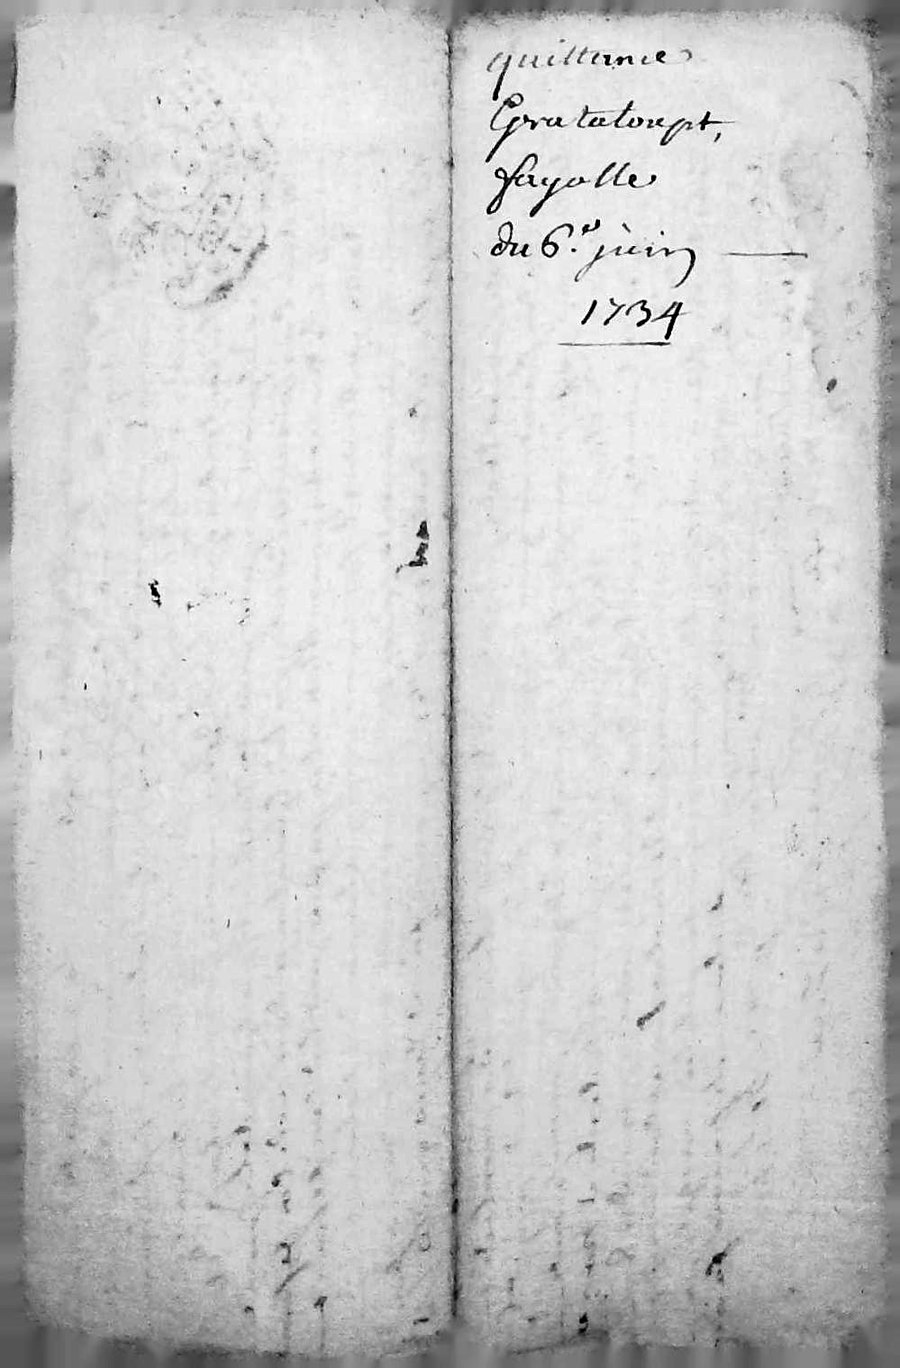 quittance
Grataloupt,
fayolle
du 6.e juin
1734